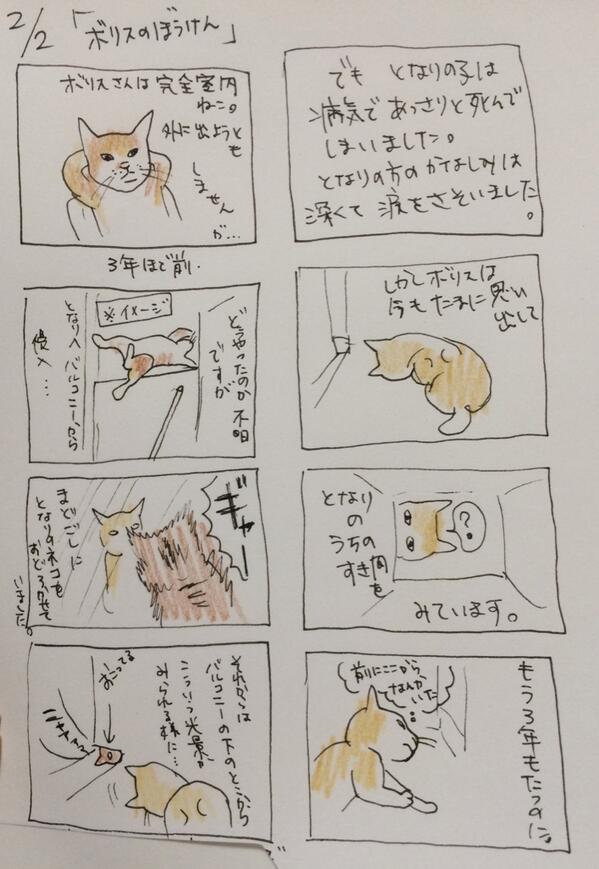 2/2 「ボリスのぼうけん」
ボリスさんは完全室内
ねこ。
外に出ようとも
しません
が…
3年ほど前.
※イメージ
どうやったのか不明
ですが
となりへバルコニーから
侵入…
ギャー
まどごしに
となりのネコを
おどろかせて
いました。
それからは
バルコニーの下のとこから
こういう光景が
みられる様に…
おこってる
ギャー
でも となりの子は
病気で あっさりと死んで
しまいました。
となりの方の かなしみは
深くて 涙をさそいました。
しかしボリスは
今もたまに思い
出して
?
となり
の
うちの
すき間を
みています。
もう3年もたつのに。
前にここから
なんか いた